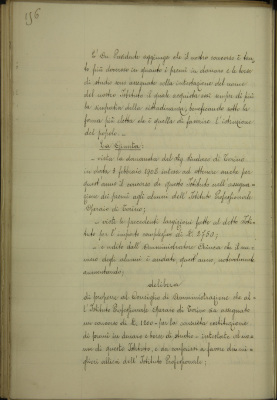 196
E' Sig. Presidente aggiunge che il nostro concorso è tan-
to più doveroso in quanto i premi in denaro e le borse
di studio son assegnate colla intestazione del nome
del nostro Istituto il quale acquista così sempre di più
la simpatia della cittadinanza, beneficando sotto la
forma più eletta che è quella di favorire l'istruzione
del popolo. -
La Giunta:
- vista la domanda del Sig. Sindaco di Torino
in data 8 febbraio 1908 intesa ad ottenere anche per
quest'anno il concorso di questo Istituto nell'assegna-
zione dei premi agli alunni dell'Istituto Professionale
Operaio di Torino;
- viste le precedenti largizioni fatte al detto Isti-
tuto per l'importo complessivo di L. 2750;
- udito dall'Amministratore che il nu-
mero degli alunni è andato, quest'anno, notevolmente
aumentando;
delibera
di proporre al Consiglio di Amministrazione che al-
l'Istituto Professionale Operaio di Torino sia assegnato
un concorso di L. 1200 per la costituzione
di premi in denaro e borse di studio - intestate al no-
me di questo Istituto, e da conferirsi a favore dei mi-
gliori allievi dell'Istituto Professionale;